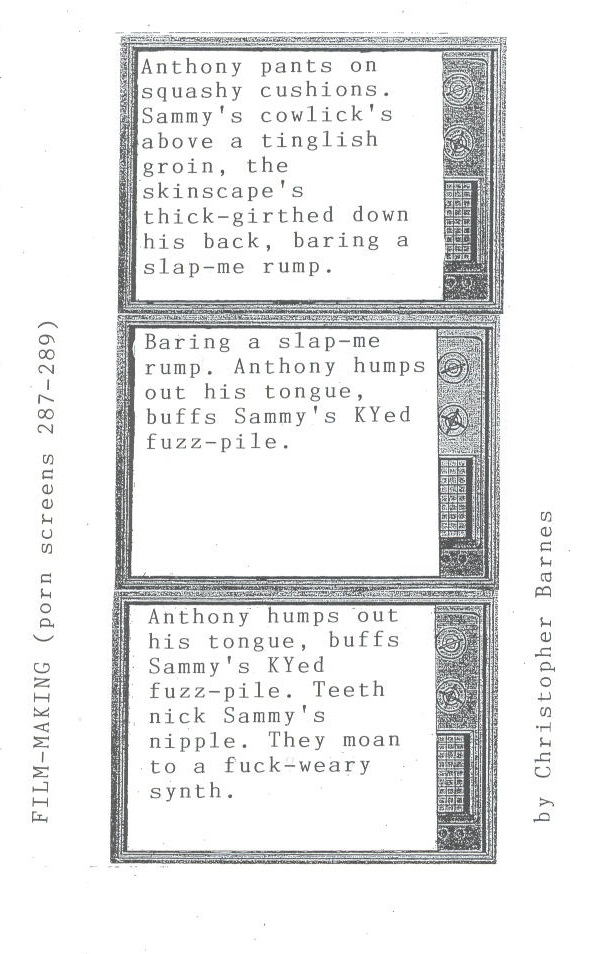 FILM-MAKING (porn screens 287-289)
Anthony pants on
squashy cushions.
Sammy's cowlick's
above a tinglish
groin, the
skinscape's
thick-girthed down
his back, baring a
slap-me rump.
Baring a slap-me
rump. Anthony humps
out his tongue,
buffs Sammy's KYed
fuzz-pile.
Anthony humps out
his tongue, buffs
Sammy's KYed
fuzz-pile. Teeth
nick Sammy's
nipple. They moan
to a fuck-weary
synth.
by Christopher Barnes